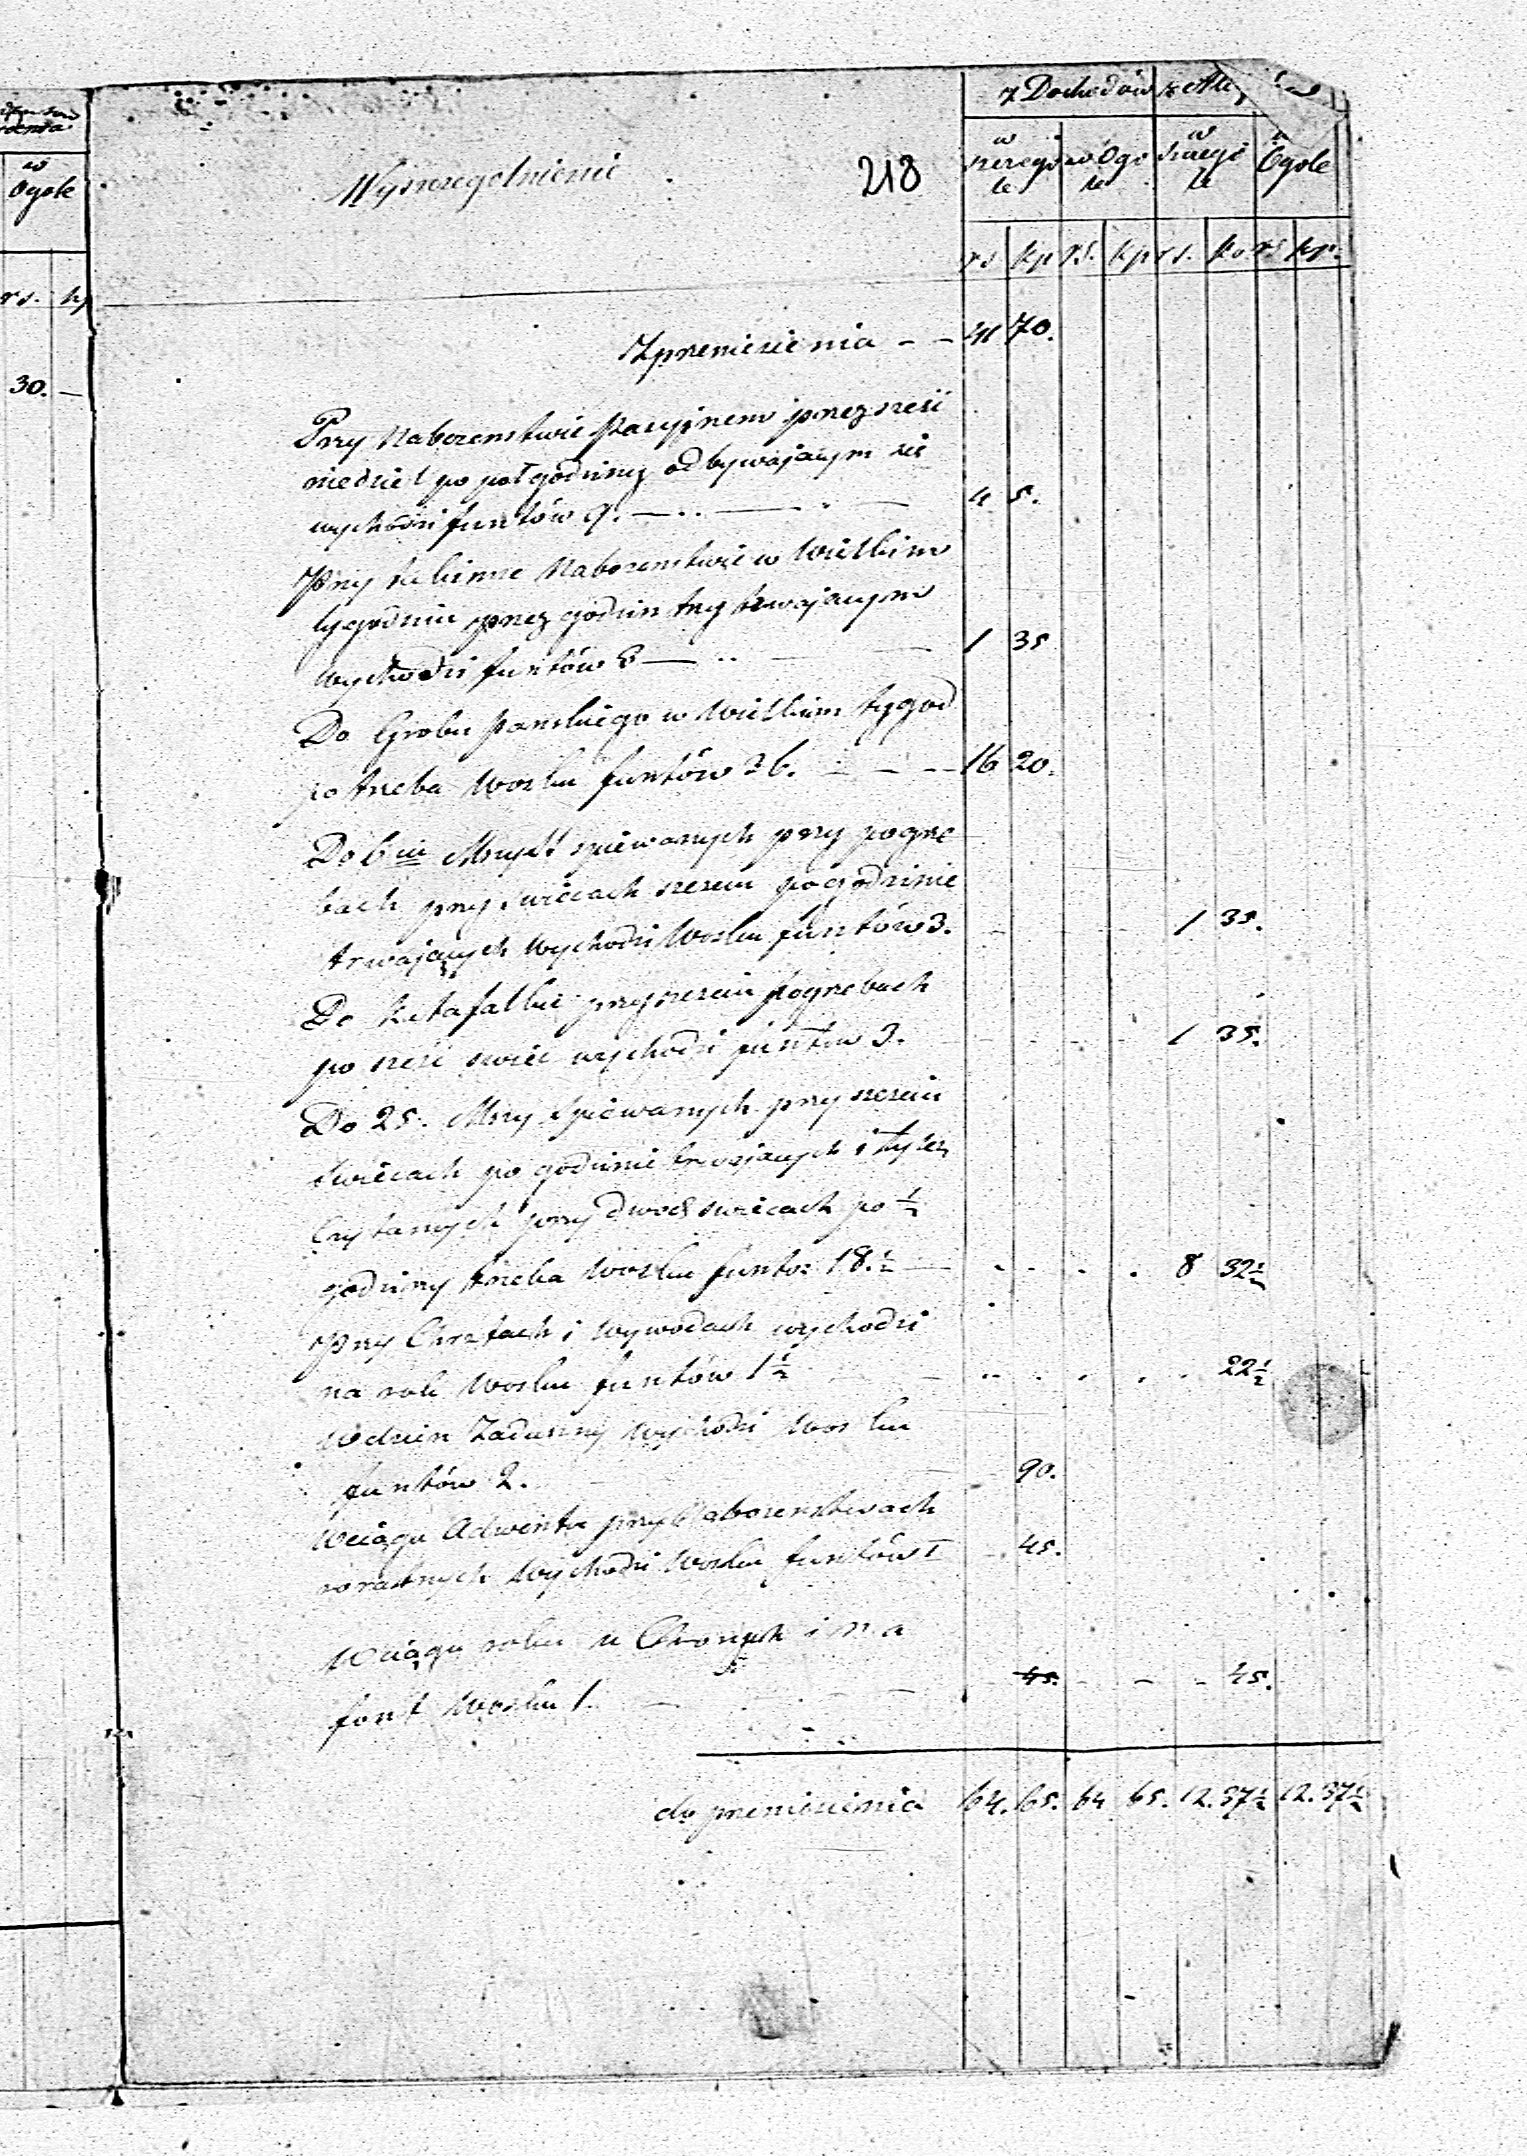 w
Ogole
rs. kp
30. —
z Dochodów
Wyszczegolnienie
218
w szczegó le
w Ogó le
w szczegó le
w Ogole
rs kp rs. kp rs. kp rs kp.
Z przeniesienia - - 41 70.
Przy Nabozenstwie Passyjnem przez szesć
niedziel po półgodziny odbywającym się
wychodzi funtów 9. — 4 5.
Przy takimże Nabozenstwie w Wielkim
tygodniu przez godzin trzy trwającym
wychodzi funtów 3 — 1 35
Do Grobu Panskiego w Wielkim tygod
potrzeba Wosku funtów 36. — 16 20.
Do 6ciu Mszy Spiewanych przy pogrze
bach przy swiecach szesciu po godzinie
trwających Wychodzi Wosku funtów 3. 1 35.
Do Katafalku przy szesciu pogrzebach
po szesć swiec wychodzi funtów 3. 1 35.
Do 25. Mszy Spiewanych przy szesciu
swiecach po godzinie trwających i tylez
Czytanych przy dwoch swiecach po ½
godziny trzeba Wosku funtów 18.½ — 8 32½
Przy Chrztach i Wywodach wychodzi
na rok Wosku funtów 1½ 22½
W dzien Zaduszny Wychodzi Wosku
funtów 2. 90.
W ciągu Adwentu przy Nabozenstwach
roratnych Wychodzi Wosku funtów 1 45.
W ciągu roku u Chorych i na
font Wosku 1. — 45. 45.
do przeniesienia 64. 65. 64 65. 12. 37½ 12. 37½